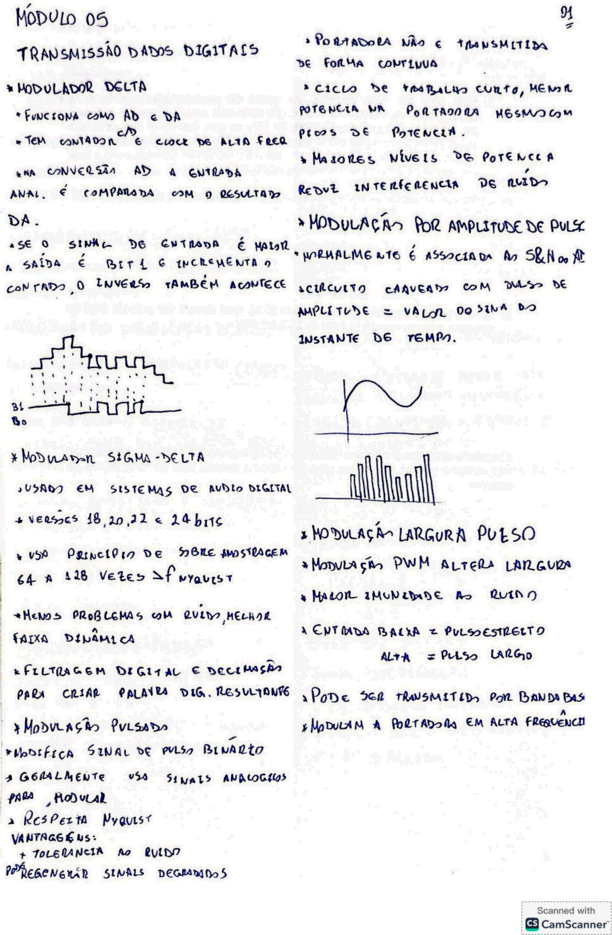 MÓDULO 05
TRANSMISSÃO DADOS DIGITAIS
* MODULADOR DELTA
* FUNCIONA COMO AD E DA
* TEM CONTADOR C/D E CLOCK DE ALTA FREQ
* NA CONVERSÃO AD A ENTRADA
ANAL. É COMPARADA COM O RESULTADO
DA.
* SE O SINAL DE ENTRADA É MAIOR
A SAÍDA É BIT 1 E INCREMENTA O
CONTADO, O INVERSO TAMBÉM ACONTECE
B1
B0
* MODULADOR SIGMA-DELTA
* USADO EM SISTEMAS DE AUDIO DIGITAL
* VERSÕES 18, 20, 22 E 24 bITS
* USA PRINCIPIO DE SOBRE AMOSTRAGEM
64 A 128 VEZES >f NYQUIST
* MENOS PROBLEMAS COM RUÍDO, MELHOR
FAIXA DINÂMICA
* FILTRAGEM DIGITAL E DECIMAÇÃO
PARA CRIAR PALAVRA DIG. RESULTANTE
* MODULAÇÃO PULSADO
* MODIFICA SINAL DE PULSO BINÁRIO
* GERALMENTE USA SINAIS ANALOGICOS
PARA MODULAR
* RESPEITA NYQUIST
VANTAGENS:
+ TOLERANCIA AO RUIDO
PODE REGENERAR SINAIS DEGRADADOS
91
* PORTADORA NÃO E TRANSMITIDA
DE FORMA CONTINUA
* CICLO DE TRABALHO CURTO, MENOR
POTENCIA NA PORTADORA MESMO COM
PICOS DE POTENCIA.
* MAIORES NÍVEIS DE POTENCIA
REDUZ INTERFERENCIA DE RUÍDO
* MODULAÇÃO POR AMPLITUDE DE PULSO
* NORMALMENTE É ASSOCIADA AO S&H
* CIRCUITO CHAVEADO COM PULSO DE
AMPLITUDE = VALOR DO SINA DO
INSTANTE DE TEMPO.
* MODULAÇÃO LARGURA PULSO
* MODULAÇÃO PWM ALTERA LARGURA
* MAIOR IMUNIDADE AO RUIDO
* ENTRADA BAIXA = PULSO ESTREITO
ALTA = PULSO LARGO
* PODE SER TRANSMITIDO POR BANDA BAS
* MODULAM A PORTADORA EM ALTA FREQUÊNCI
Scanned with
CS CamScanner